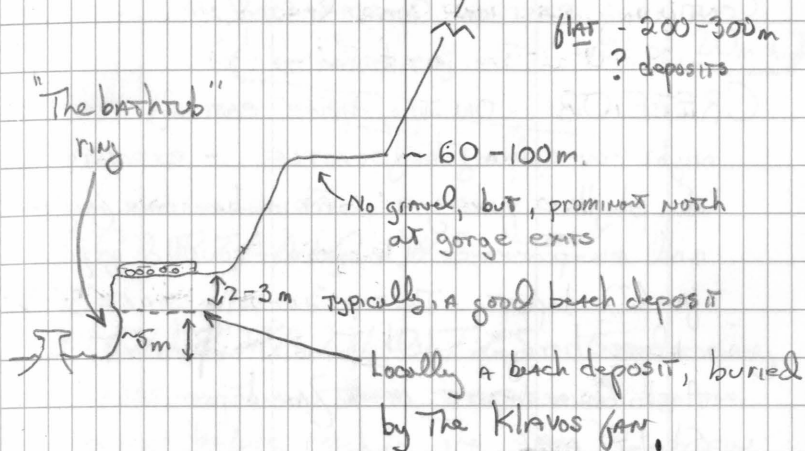 flat - 200-300m
? deposits
"The bathtub"
ring
~ 60-100m.
No gravel, but, prominant notch
at gorge exits
2-3m
Typically, a good beach deposit
~5m
Locally a beach deposit, buried
by The Klavos fan.